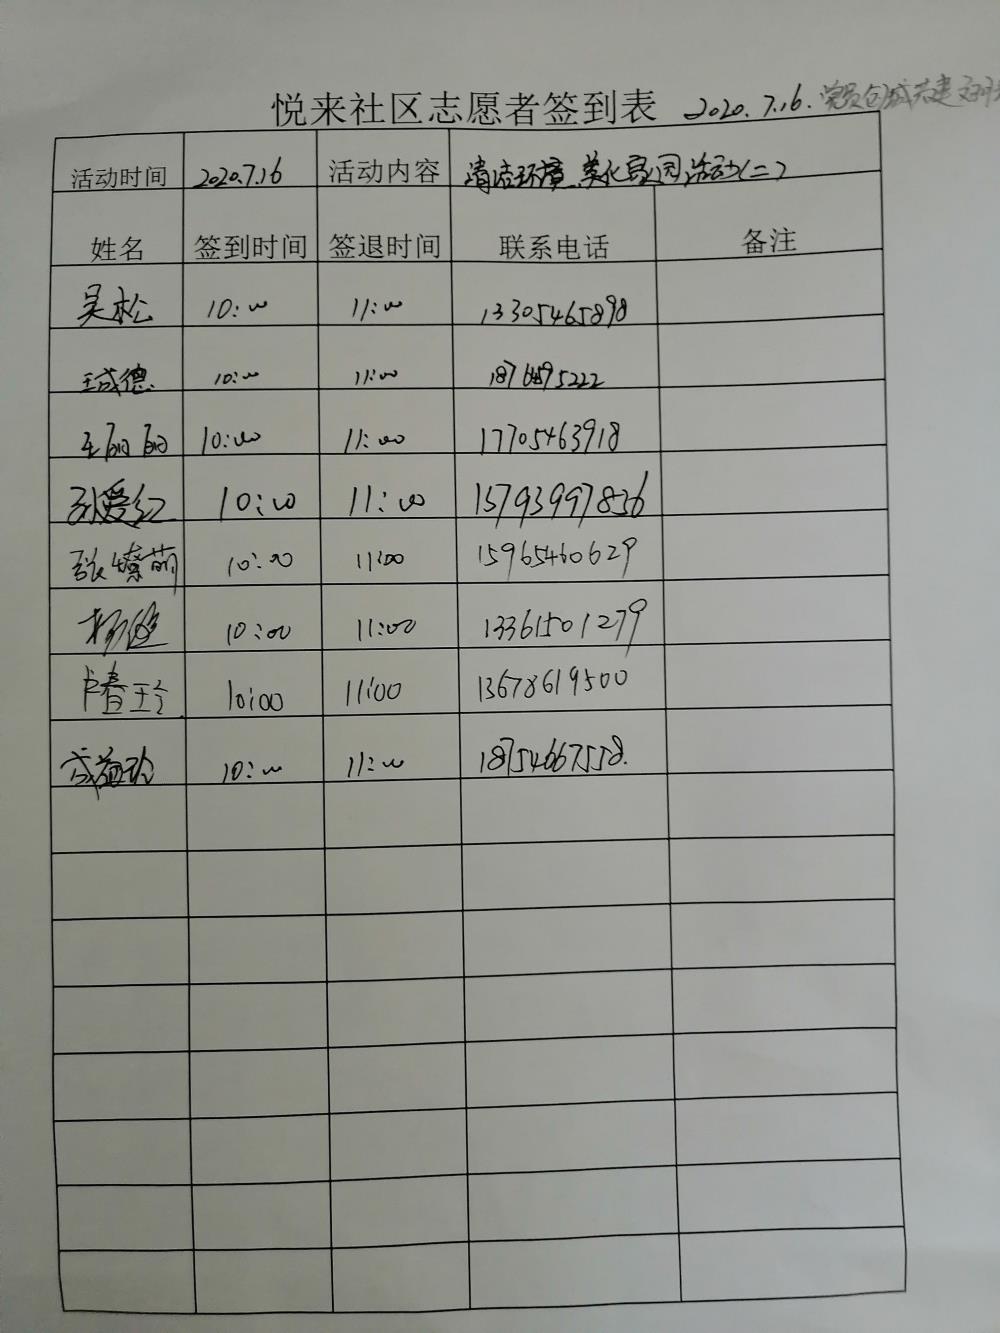 悦来社区志愿者签到表 2020.7.16.
活动时间 2020.7.16 活动内容 清洁环境 美化家园活动(二)
姓名 签到时间 签退时间 联系电话 备注
吴松 10:00 11:00 13305465898
10:00 11:00
王丽丽 10:00 11:00 17705463918
孙爱红 10:00 11:00 15793997836
张嫽萌 10:00 11:00 15965460629
杨健 10:00 11:00 13361501279
卢春玲 10:00 11:00 13678619500
10:00 11:00 18754667558.